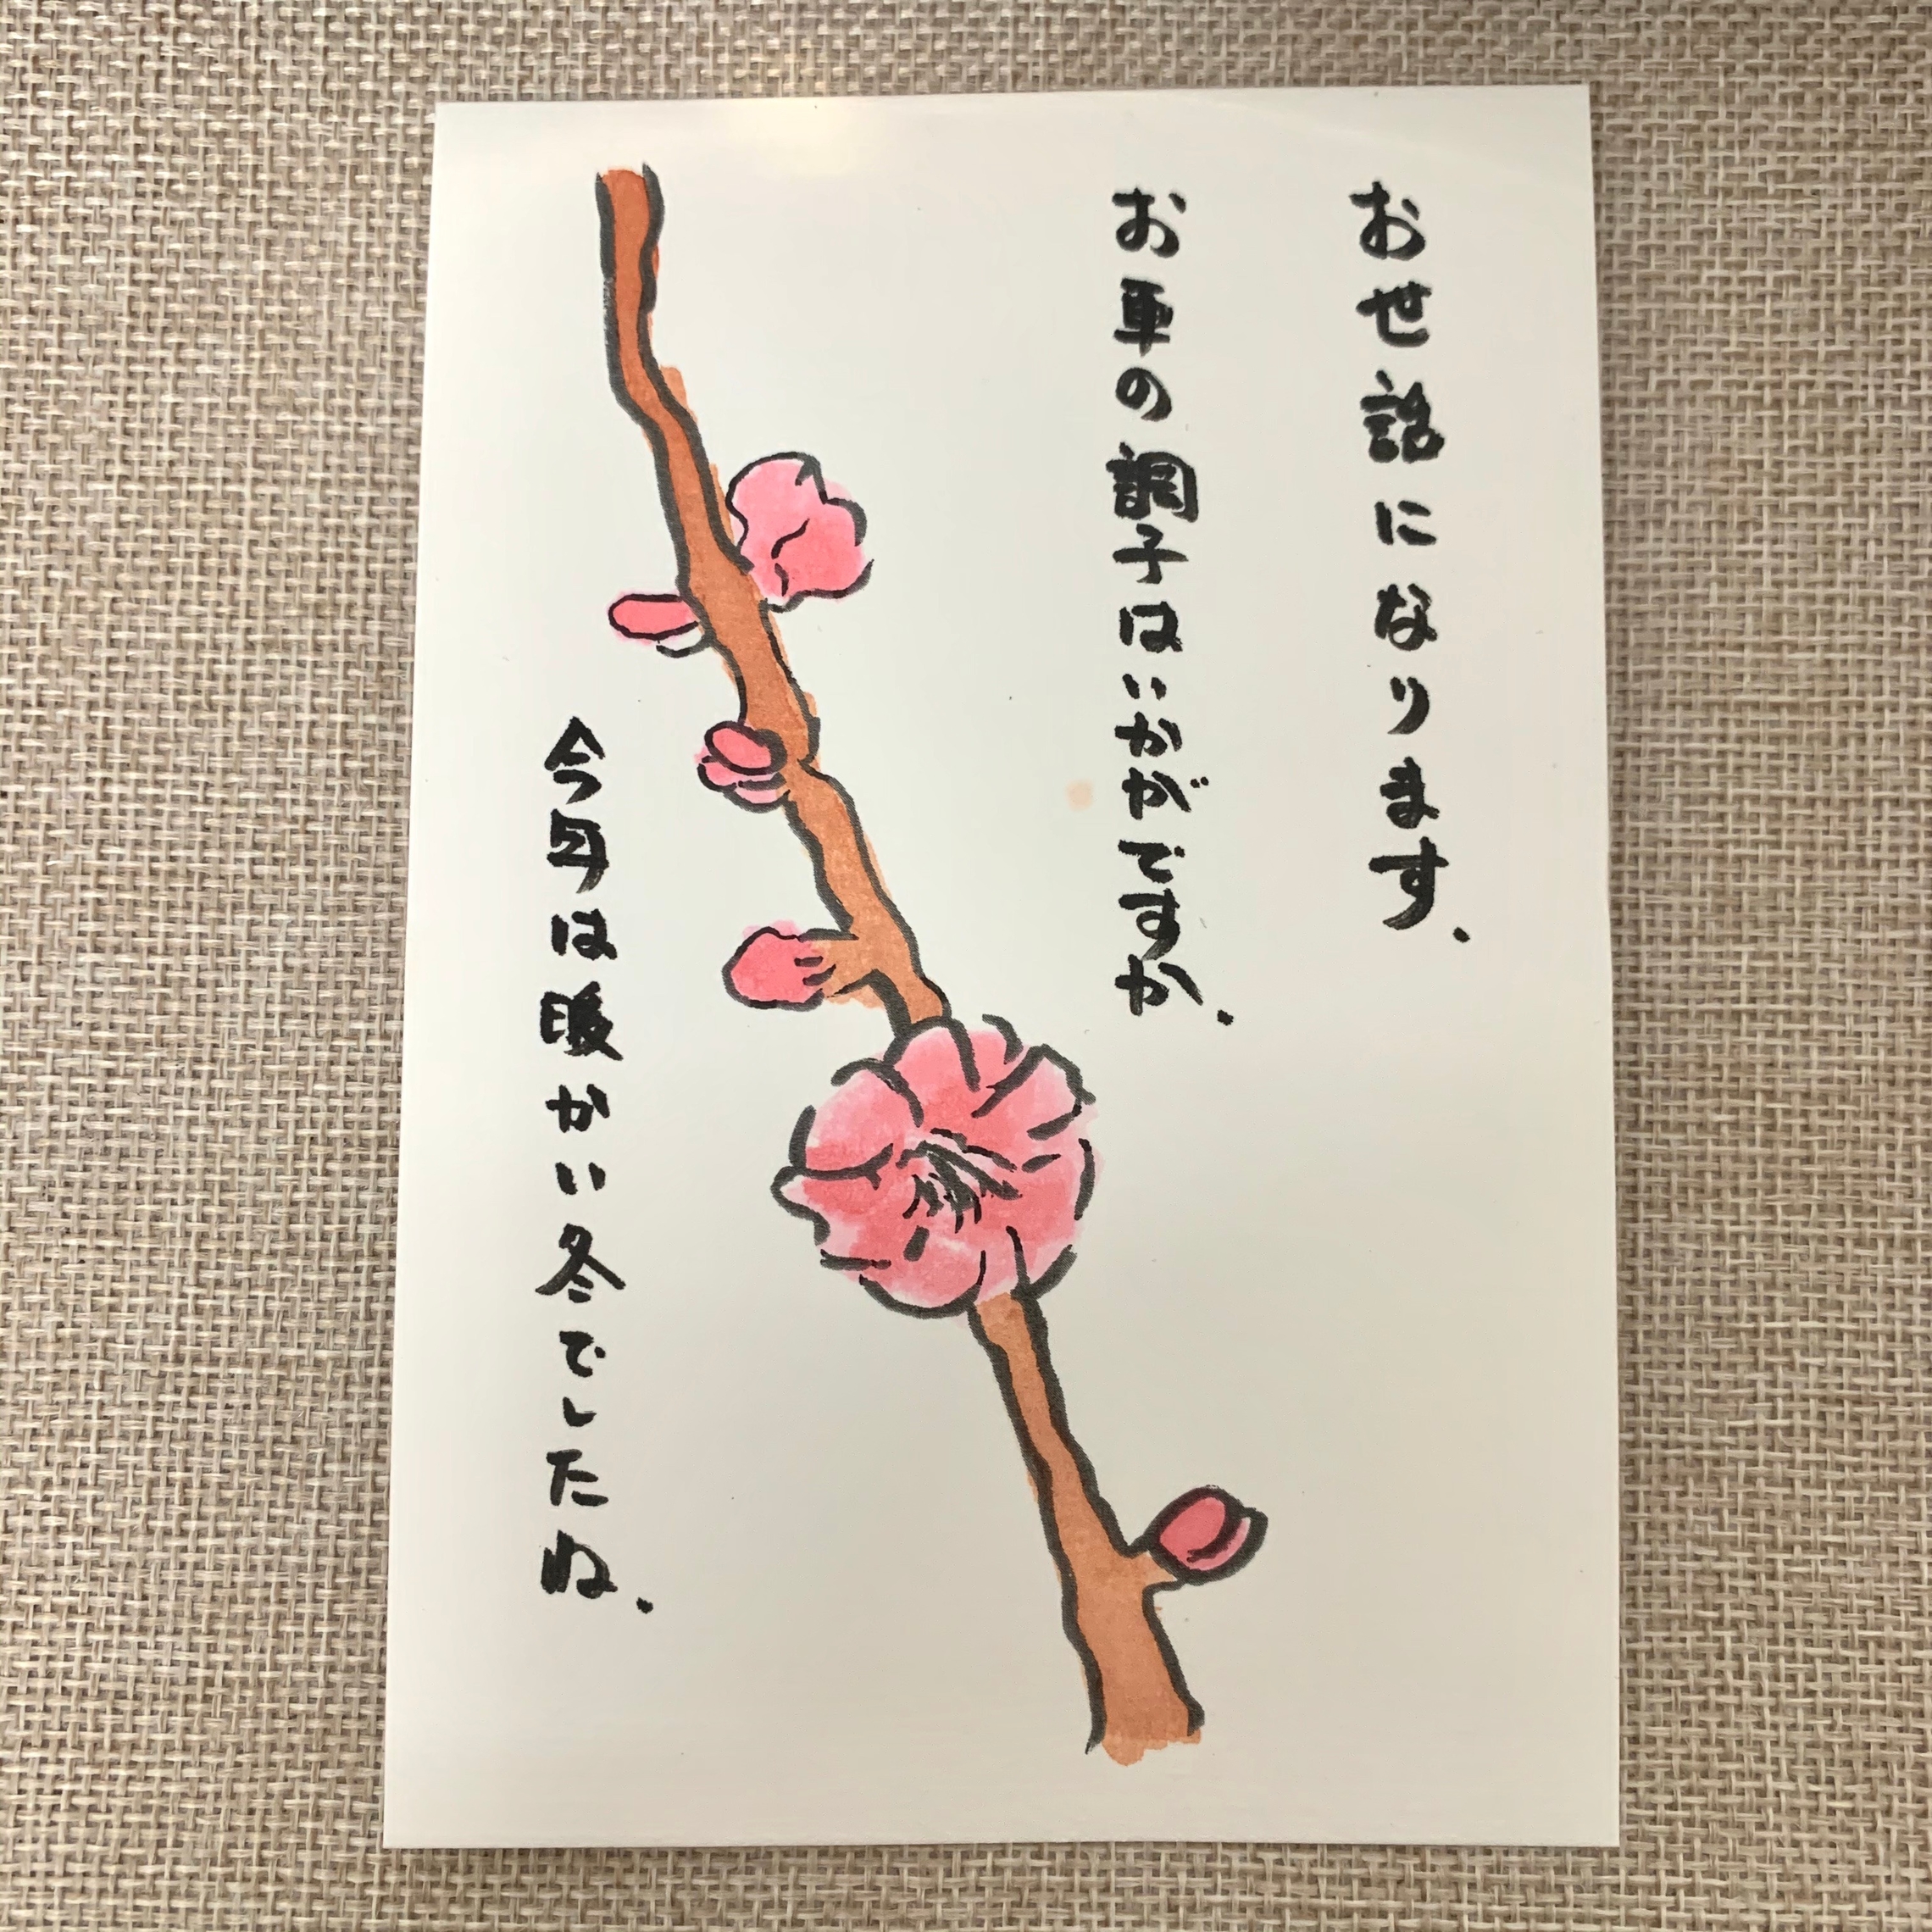 おせ話になります.
お車の調子はいかがですか.
今年は暖かい冬でしたね.